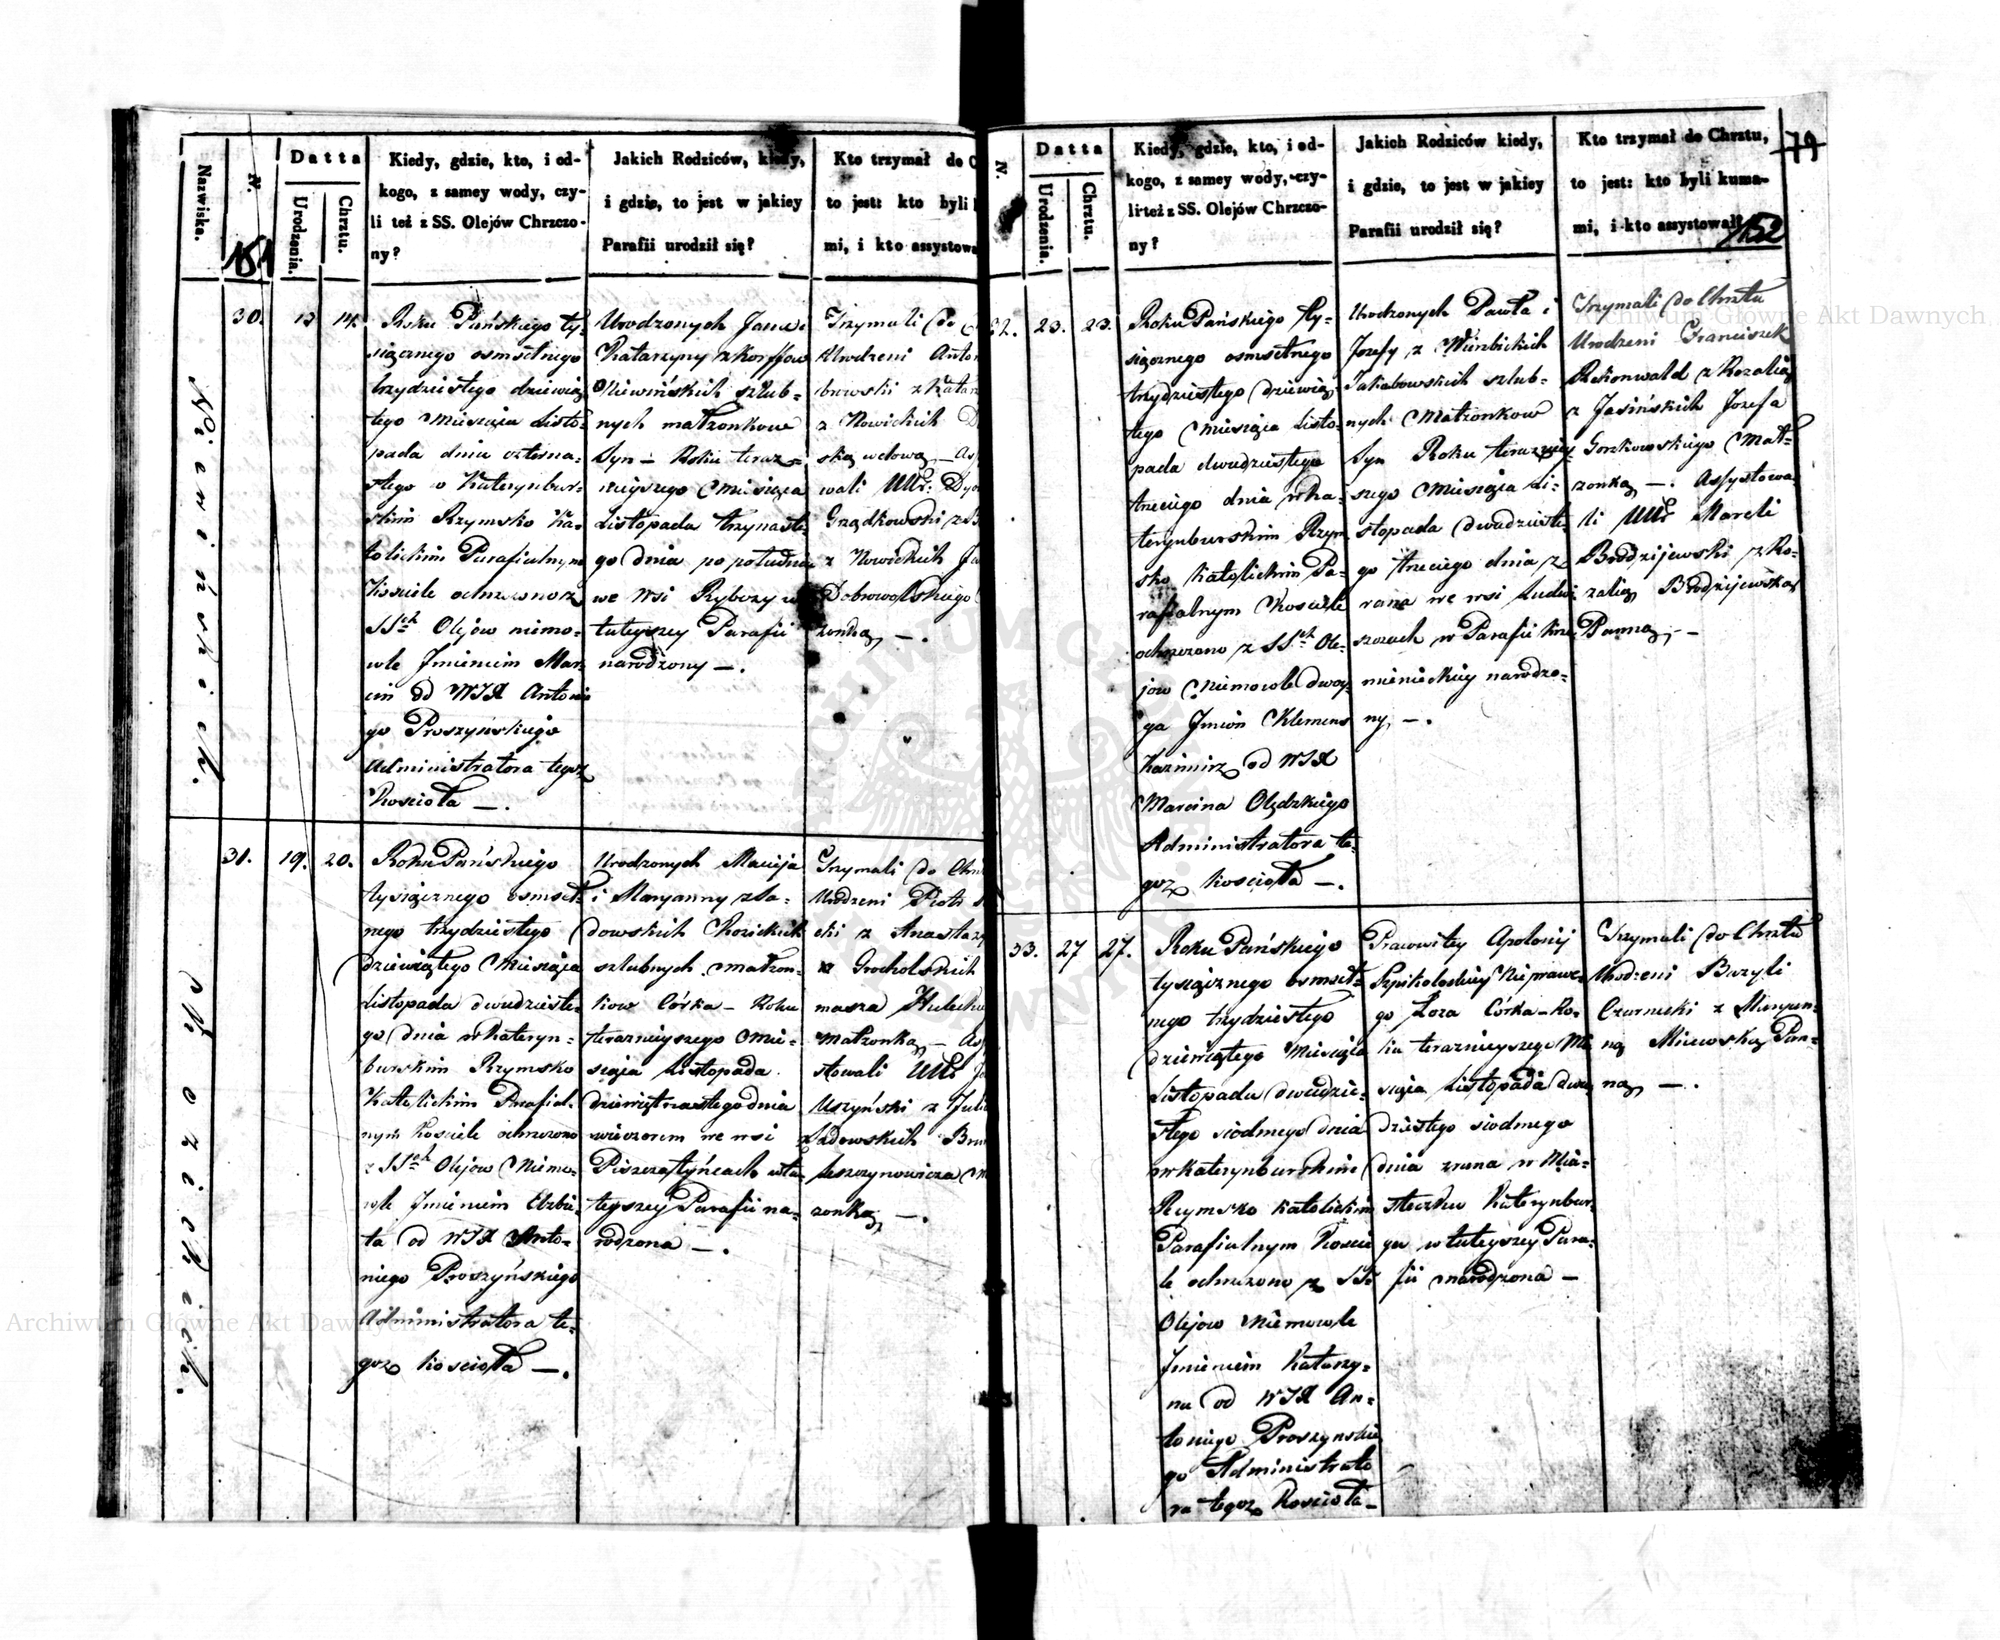 Nazwiska.
N.
Datta
Urodzenia.
Chrztu.
Kiedy, gdzie, kto, i od-
kogo, z samey wody, czy-
li też z SS. Olejów Chrzczo-
ny?
Jakich Rodziców, kiedy,
i gdzie, to jest w jakiey
Parafii urodził się?
Kto trzymał do C
to jest: kto byli
mi, i kto assystowa
151
Niewińskich.
30.
13
14.
Roku Pańskiego ty-
siącznego osmsetnego
trzydziestego dziewią-
tego Miesiąca Listo-
pada dnia czterna-
stego w Katerynbur-
skim Rzymsko Ka-
tolickim Parafialnym
Kościele ochrzczono z
SSch Olejow niemo-
wle Jmieniem Mar-
cin od WJX Antonie
go Proszyńskiego
Administratora tegoż
Kościoła —.
Urodzonych Jana i
Katarzyny z Korffow
Niewińskich szlub-
nych małzonkow
Syn — Roku teraz-
nieyszego Miesiąca
Listopada trzynaste-
go dnia po południu
we Wsi Rybczy w
tuteyszey Parafii
narodzony —.
Trzymali do
Urodzeni Anton
bowski z Katar
z Nowickich D
ską wdową — As
wali UUr: Dyo
Grządkowski z
z Nowickich Ja
Dobrowolskiego
żonką —.
Kozickich.
31.
19.
20.
Roku Pańskiego
tysiącznego osmset-
nego trzydziestego
dziewiątego Miesiąca
Listopada dwudzieste-
go dnia w Kateryn-
burskim Rzymsko
Katolickim Parafial-
nym Kościele ochrzczono
z SSch Olejow Niemo-
wle Jmieniem Elzbie-
ta od WJX Anto-
niego Proszyńskiego
Administratora te-
goż Kościoła —.
Urodzonych Macieja
i Maryanny z Sa-
dowskich Kozickich
szlubnych małzon-
kow Córka — Roku
teraznieyszego Mie-
siąca Listopada
dziewiętnastego dnia
wieczorem we wsi
Piszczatyńcach w tu-
teyszey Parafii na-
rodzona —.
Trzymali do Chrz
Urodzeni Piotr
cki z Anastazy
z Grocholskich
masza Huleckie
Małzonką — As
stowali UUr J
Uszyński z Juli
Sadowskich Bro
Leszczynowicza
żonką —.
N.
Datta
Urodzenia.
Chrztu.
Kiedy, gdzie, kto, i od-
kogo, z samey wody, czy-
li też z SS. Olejów Chrzczo-
ny?
Jakich Rodziców kiedy,
i gdzie, to jest w jakiey
Parafii urodził się?
Kto trzymał do Chrztu,
to jest: kto byli kuma-
mi, i kto assystował?
79
152
32.
23.
23.
Roku Pańskiego ty-
siącznego osmsetnego
trzydziestego dziewią-
tego Miesiąca Listo-
pada dwudziestego
trzeciego dnia w Ka-
terynburskim Rzym-
sko Katolickim Pa-
rafialnym Kościele
ochrzczono z SSch Ole-
jow Niemowle dwoy-
ga Jmion Klemens
Kazimirz od WJX
Marcina Olędzkiego
Administratora te-
goż Kościoła —.
Urodzonych Pawła i
Jozefy z Wierzbickich
Jakubowskich szlub-
nych Małzonkow
Syn Roku terazniey-
szego Miesiąca Li-
stopada dwudzieste-
go trzeciego dnia z
rana we wsi Ludwi
szczach w Parafii Krze-
mienieckiey narodzo-
ny —.
Trzymali do Chrztu
Urodzeni Franciszek
Rekonwald z Rozalią
z Jasińskich Jozefa
Gorzkowskiego Mał-
żonką —. Assystowa-
li UUr Marceli
Brodzijewski z Ro-
zalią Brodzijewską
Panną —
33.
27
27.
Roku Pańskiego
tysiącznego osmset-
nego trzydziestego
dziewiątego Miesiąca
Listopada dwudzie-
stego siodmego dnia
w Katerynburskim
Rzymsko Katolickim
Parafialnym Koście
le ochrzczono z SS
Olejow Niemowle
Jmieniem Katarzy-
na od WJX An-
toniego Proszynskie
go Administrato
ra tegoż Kościoła —
Pracowitey Apolonij
Nieprawe-
go Łoza Córka — Ro-
ku teraznieyszego Mie
siąca Listopada dwu
dziestego siodmego
dnia zrana w Mia-
steczku Katerynbur-
gu w tuteyszey Para-
fii narodzona —
Trzymali do Chrztu
Urodzeni Bazyli
Czarnecki z Maryan-
ną Pan-
ną —.
Archiwum Główne Akt Dawnych
Archiwum Główne Akt Dawnych